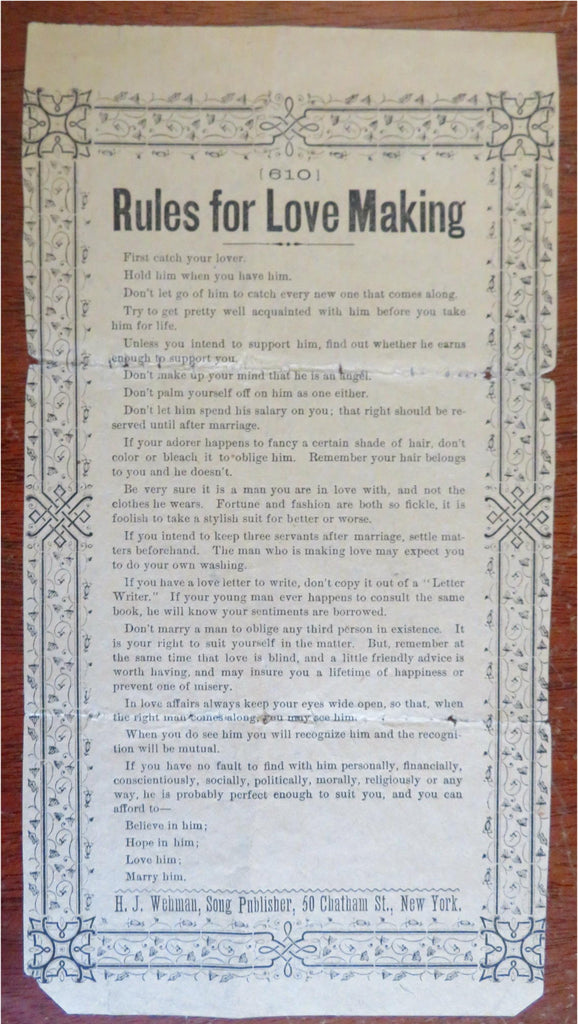 [610]
Rules for Love Making
First catch your lover.
Hold him when you have him.
Don't let go of him to catch every new one that comes along.
Try to get pretty well acquainted with him before you take
him for life.
Unless you intend to support him, find out whether he earns
enough to support you.
Don't make up your mind that he is an angel.
Don't palm yourself off on him as one either.
Don't let him spend his salary on you; that right should be re-
served until after marriage.
If your adorer happens to fancy a certain shade of hair, don't
color or bleach it to oblige him. Remember your hair belongs
to you and he doesn't.
Be very sure it is a man you are in love with, and not the
clothes he wears. Fortune and fashion are both so fickle, it is
foolish to take a stylish suit for better or worse.
If you intend to keep three servants after marriage, settle mat-
ters beforehand. The man who is making love may expect you
to do your own washing.
If you have a love letter to write, don't copy it out of a "Letter
Writer." If your young man ever happens to consult the same
book, he will know your sentiments are borrowed.
Don't marry a man to oblige any third person in existence. It
is your right to suit yourself in the matter. But, remember at
the same time that love is blind, and a little friendly advice is
worth having, and may insure you a lifetime of happiness or
prevent one of misery.
In love affairs always keep your eyes wide open, so that, when
the right man comes along, you may see him.
When you do see him you will recognize him and the recogni-
tion will be mutual.
If you have no fault to find with him personally, financially,
conscientiously, socially, politically, morally, religiously or any
way, he is probably perfect enough to suit you, and you can
afford to—
Believe in him;
Hope in him;
Love him;
Marry him.
H. J. Wehman, Song Publisher, 50 Chatham St., New York.